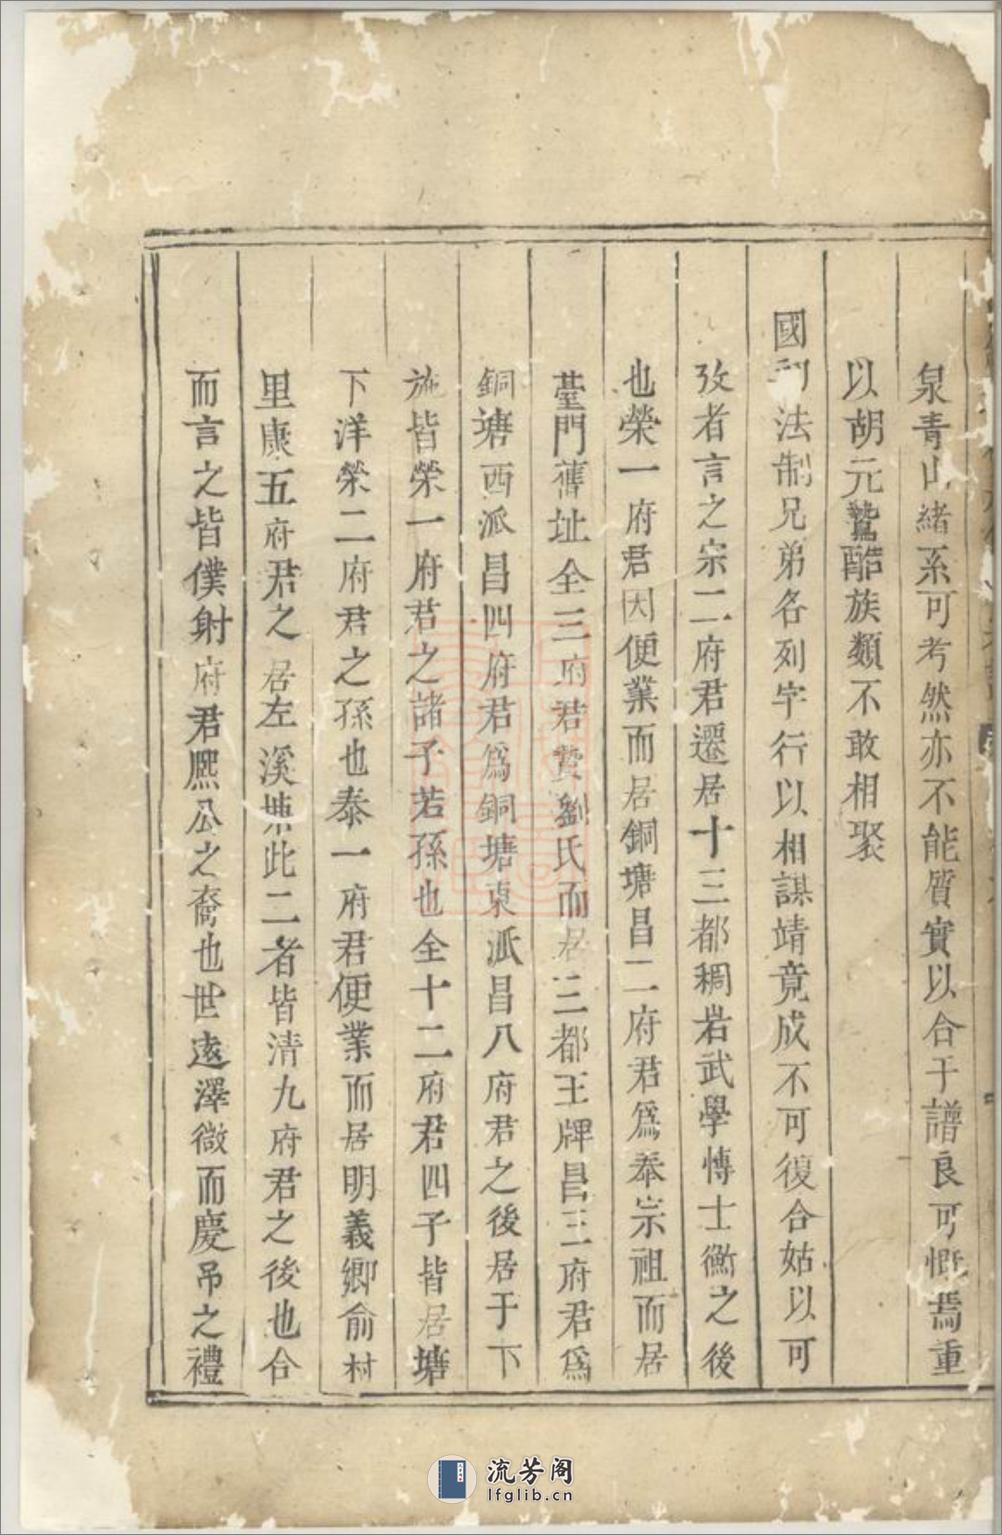 泉青山緒系可考然亦不能質實以合于譜良可慨焉重
以胡元鷙酷族類不敢相聚
國 法制兄弟各列字行以相謀靖竟成不可復合姑以可
攷者言之宗二府君遷居十三都稠岩武學愽士衡之後
也榮一府君因便業而居銅塘昌二府君爲奉宗祖而居
䑓門舊址全三府君贅劉氏而居三都王牌昌三府君爲
銅塘西派昌四府君爲銅塘東派昌八府君之後居于下
施皆榮一府君之諸子若孫也全十二府君四子皆居塘
下洋榮二府君之孫也泰一府君便業而居明義鄉俞村
里康五府君之居左溪塘此二者皆清九府君之後也合
而言之皆僕射府君熈公之裔也世遠澤微而慶吊之禮
流芳阁
lfglib.cn